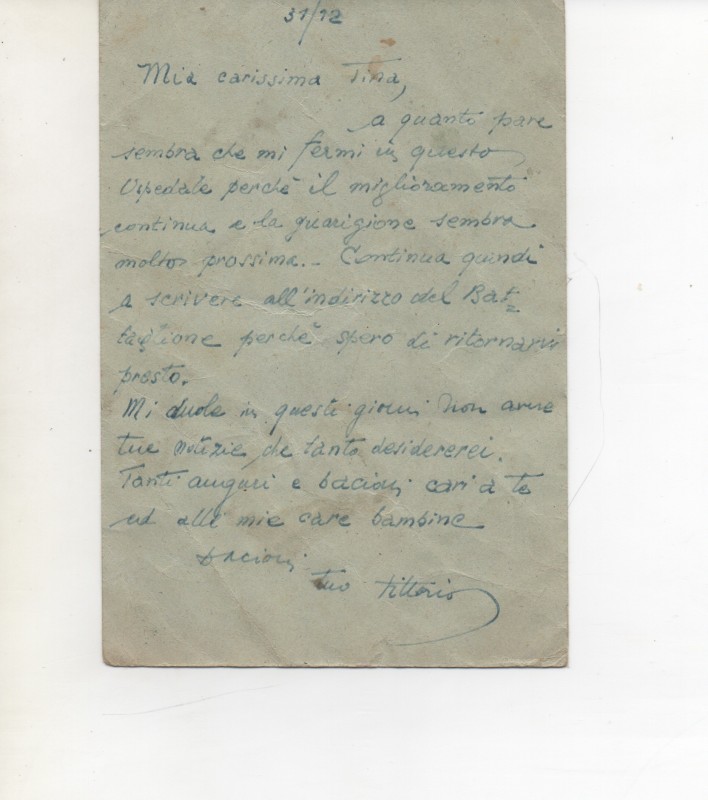 31/12
Mia carissima Tina,
a quanto pare
sembra che mi fermi in questo
Ospedale perchè il miglioramento
continua e la guarigione sembra
molto prossima.- Continua quindi
a scrivere all'indirizzo del Bat=
taglione perchè spero di ritornarvi
presto.
Mi duole in questi giorni non avere
tue notizie che tanto desidererei.
Tanti auguri e bacioni cari a te
ed alle mie care bambine
bacioni
tuo Vittorio